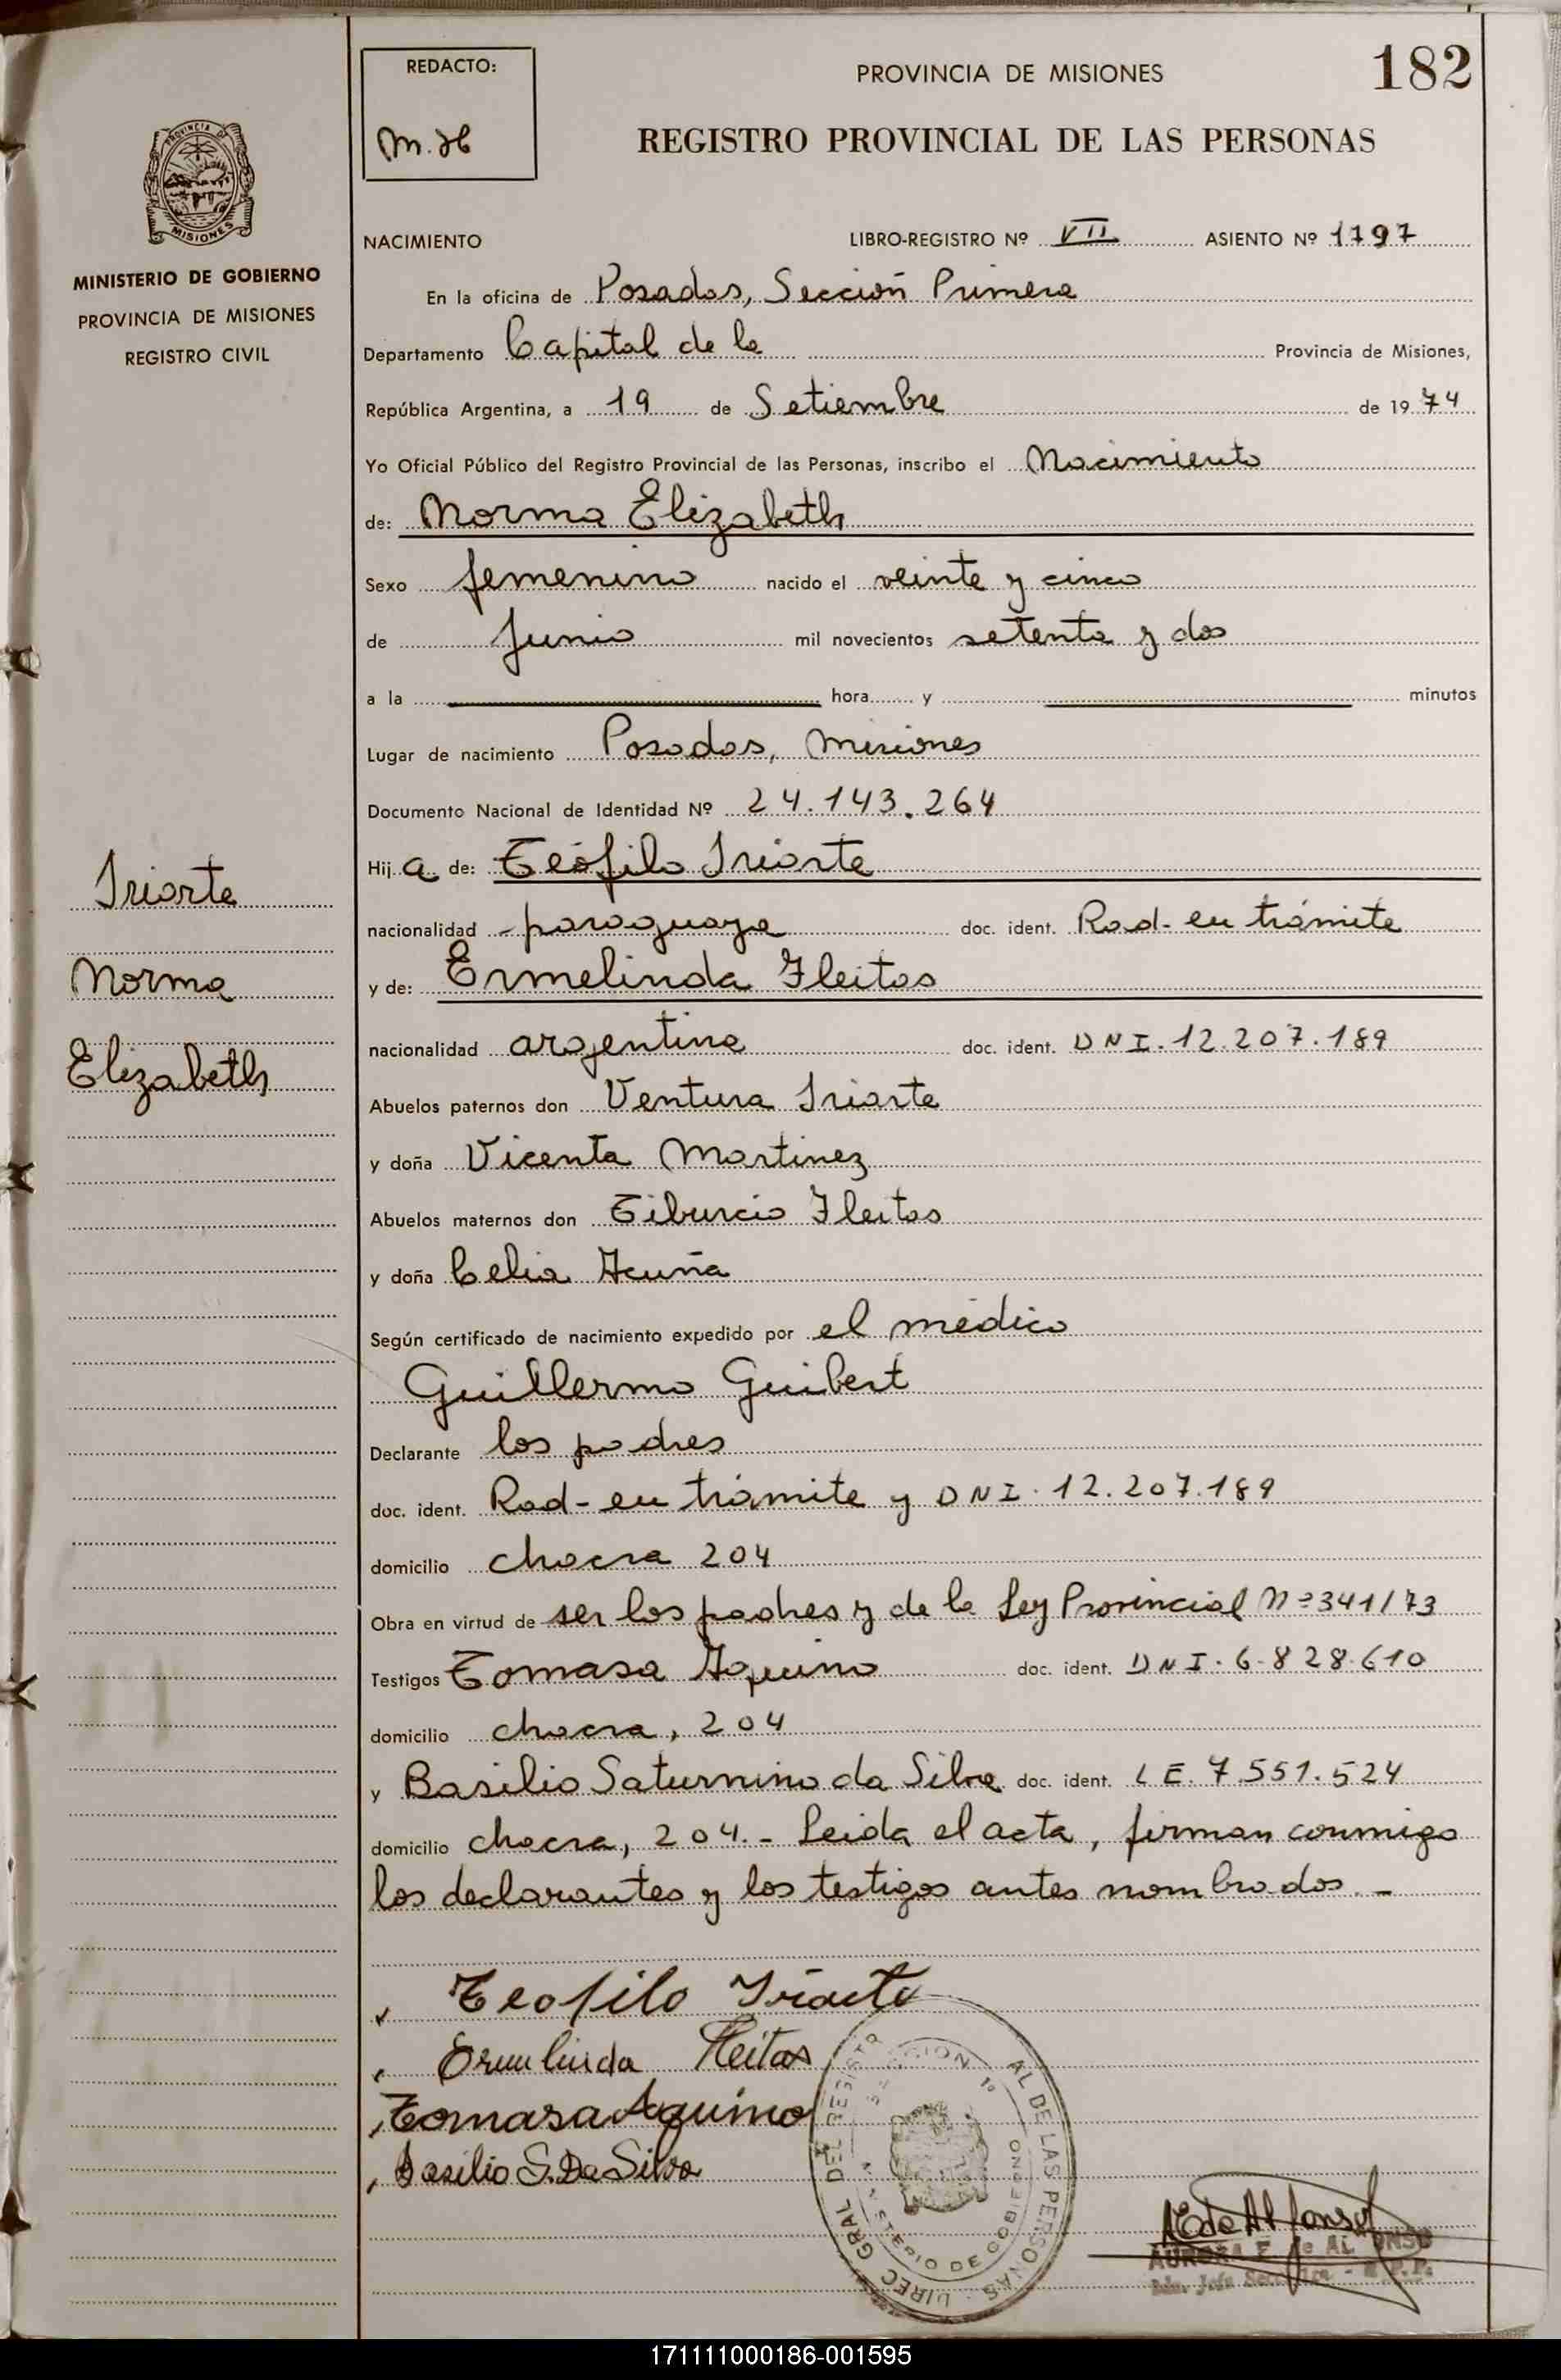 REDACTO:
M.H
PROVINCIA DE MISIONES
182
REGISTRO PROVINCIAL DE LAS PERSONAS
PROVINCIA DE
MISIONES
MINISTERIO DE GOBIERNO
PROVINCIA DE MISIONES
REGISTRO CIVIL
NACIMIENTO LIBRO-REGISTRO Nº VII ASIENTO Nº 1797
En la oficina de Posadas, Sección Primera
Departamento Capital de la Provincia de Misiones,
República Argentina, a 19 de Setiembre de 19 74
Yo Oficial Público del Registro Provincial de las Personas, inscribo el Nacimiento
de: Norma Elizabeth
Sexo femenino nacido el veinte y cinco
de Junio mil novecientos setenta y dos
a la hora y minutos
Lugar de nacimiento Posadas, Misiones
Documento Nacional de Identidad Nº 24.143.264
Hij a de: Teófilo Iriarte
nacionalidad paraguaya doc. ident. Rad- en trámite
y de: Ermelinda Fleitas
nacionalidad argentina doc. ident. DNI. 12.207.189
Abuelos paternos don Ventura Iriarte
y doña Vicenta Martinez
Abuelos maternos don Tiburcio Fleitas
y doña Celia Acuña
Según certificado de nacimiento expedido por el médico
Guillermo Guibert
Declarante los padres
doc. ident. Rad- en trámite y DNI. 12.207.189
domicilio chacra 204
Obra en virtud de ser los padres y de la Ley Provincial Nº 341/73
Testigos Tomasa Aquino doc. ident. DNI. 6.828.610
domicilio chacra, 204
y Basilio Saturnino da Silva doc. ident. LE. 7.551.524
domicilio chacra, 204.- Leida el acta, firman conmigo
los declarantes y los testigos antes nombrados.-
Iriarte
Norma
Elizabeth
Teofilo Iriarte
Ermelinda Fleitas
Tomasa Aquino
Basilio S. Da Silva
DIREC. GRAL. DEL REGISTRO AL DE LAS PERSONAS
SECCION 1º
MINISTERIO DE GOBIERNO
AEdeAlfonso
AURORA E. de ALFONSO
171111000186-001595